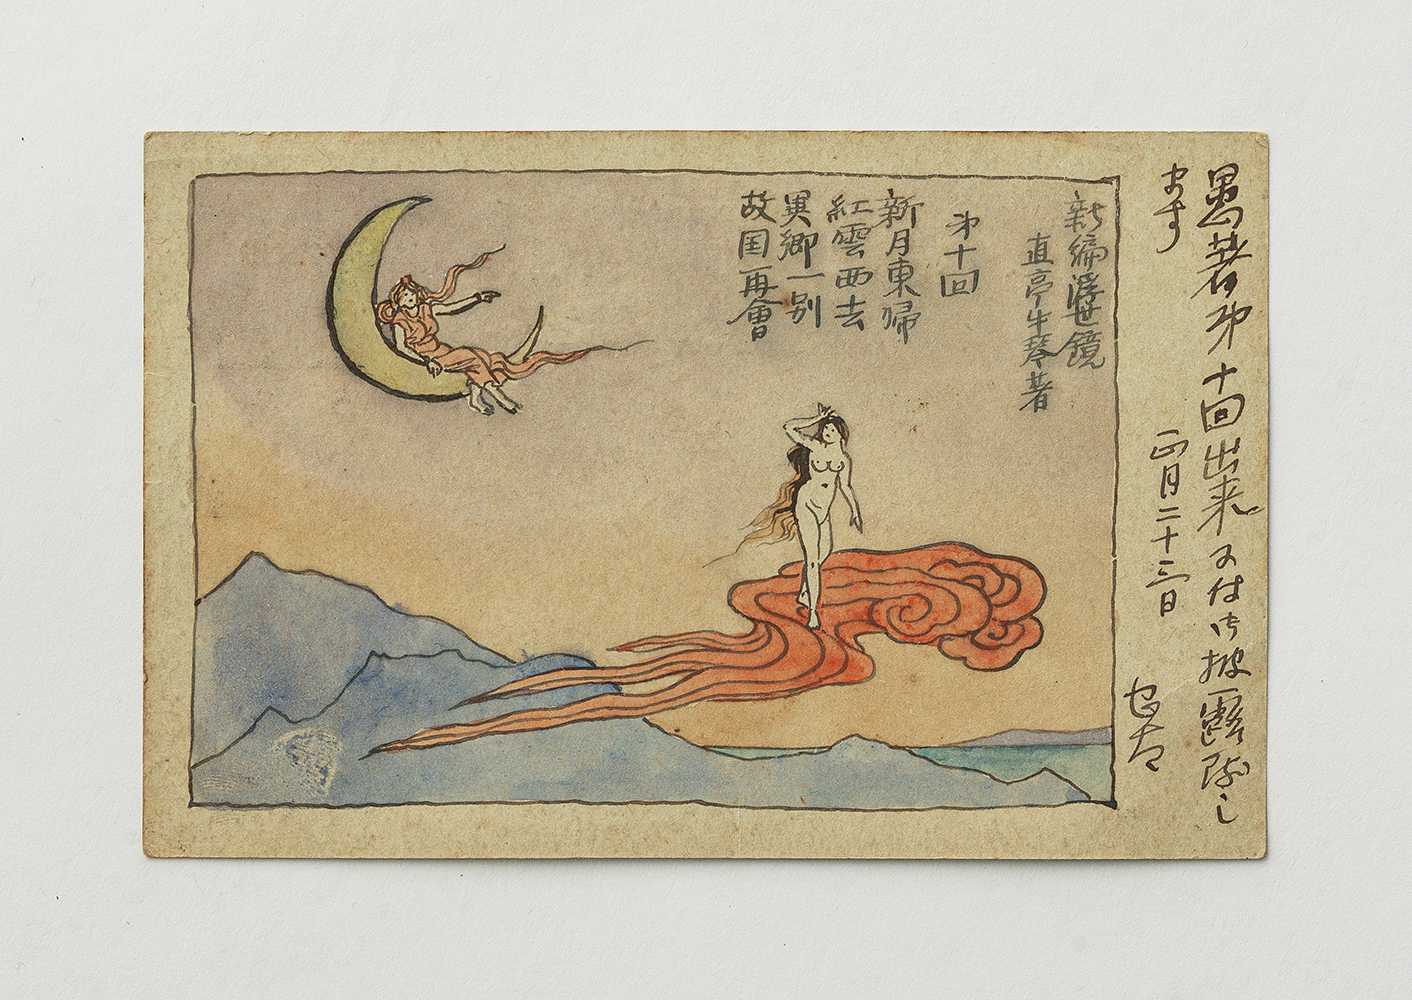 愚著第十回出来に付御披露致し
ます
正月二十三日
新編浮世鏡
直亭牛琴著
第十回
新月東帰
紅雲西去
異郷一別
故国再會